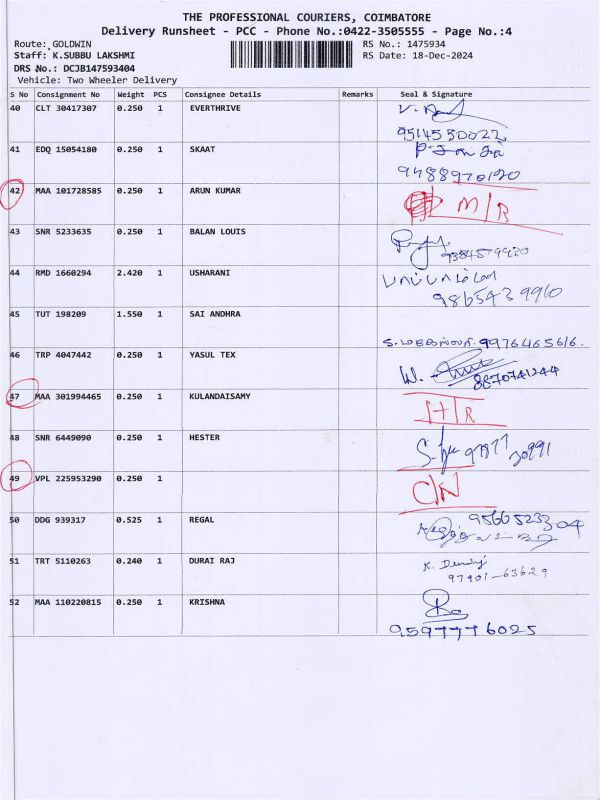 THE PROFESSIONAL COURIERS, COIMBATORE
Delivery Runsheet - PCC - Phone No.:0422-3505555 - Page No.:4
Route: GOLDWIN RS No.: 1475934
Staff: K.SUBBU LAKSHMI RS Date: 18-Dec-2024
DRS No.: DCJB147593404
Vehicle: Two Wheeler Delivery
S No Consignment No Weight PCS Consignee Details Remarks Seal & Signature
40 CLT 30417307 0.250 1 EVERTHRIVE
9514550022
41 EDQ 15054180 0.250 1 SKAAT
9488970120
42 MAA 101728585 0.250 1 ARUN KUMAR M/R
43 SNR 5233635 0.250 1 BALAN LOUIS
44 RMD 1660294 2.420 1 USHARANI
45 TUT 198209 1.550 1 SAI ANDHRA
9976465616.
46 TRP 4047442 0.250 1 YASUL TEX
8870741244
47 MAA 301994465 0.250 1 KULANDAISAMY
48 SNR 6449090 0.250 1 HESTER
49 VPL 225953290 0.250 1 C/N
50 DDG 939317 0.525 1 REGAL
51 TRT 5110263 0.240 1 DURAI RAJ
97901-63629
52 MAA 110220815 0.250 1 KRISHNA
9597776025